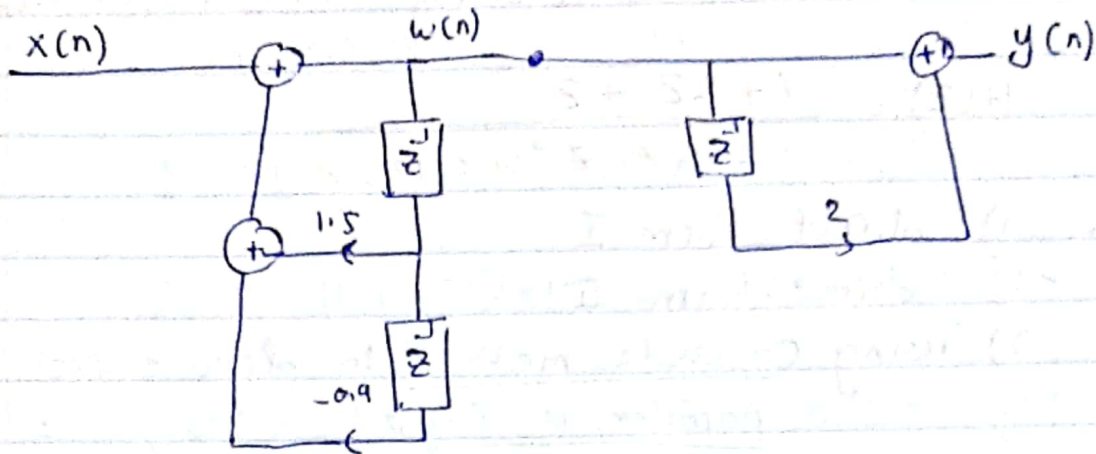 x(n)
w(n)
y(n)
+
+
z⁻¹
z⁻¹
1.5
2
+
z⁻¹
-0.9